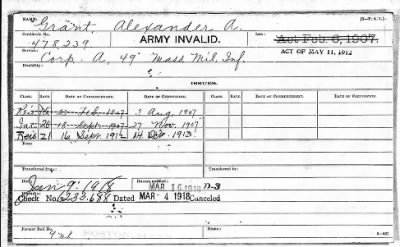 NAME: Grant, Alexander A.
Certificate No. 478,239 ARMY INVALID. Law: Act Feb. 6, 1907.
ACT OF MAY 11, 1912
Service: Corp. A, 49" Mass Mil. Inf.
Disability:
ISSUES.
CLASS. RATE. DATE OF COMMENCEMENT. DATE OF CERTIFICATE. CLASS. RATE. DATE OF COMMENCEMENT. DATE OF CERTIFICATE.
Feb. 1907 3 Aug. 1907
Sept. 1907 27 Nov. 1907
Reis 21 16 Sept. 1912 14 Oct. 1913
Transferred from Transferred to:
Jan 9" 1918 MAR 16 1918
Check No. 6233,688 Dated MAR -4 1918 Canceled
Former Roll No.